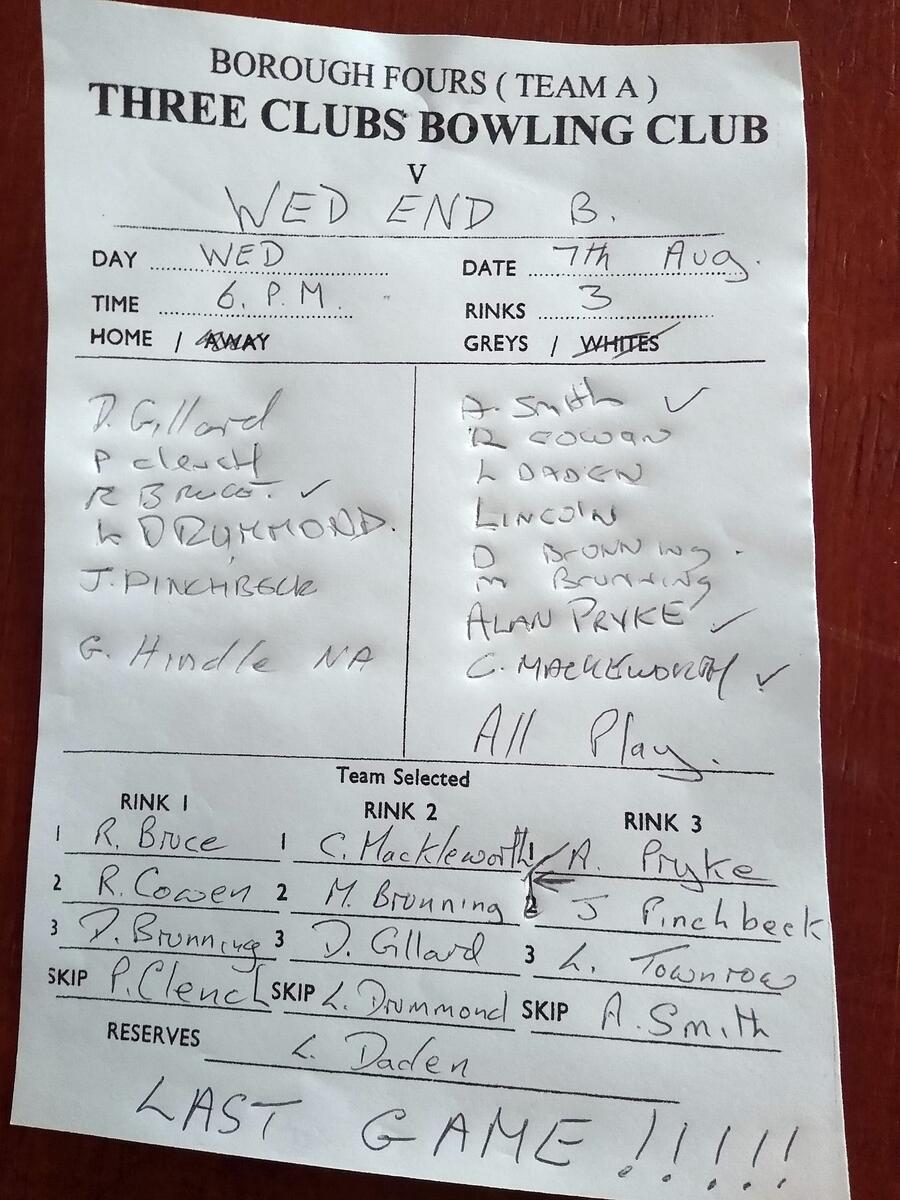 BOROUGH FOURS ( TEAM A )
THREE CLUBS BOWLING CLUB
V
WED END B.
DAY WED DATE 7th Aug.
TIME 6. P. M. RINKS 3
HOME / AWAY GREYS / WHITES
D. Gillard
P clench
R Bruce. ✓
L DRUMMOND.
J. PINCHBECK
G. Hindle NA
A. Smith ✓
R COWAN
L DADEN
LINCOLN
D BRUNNING.
M BRUNNING
ALAN PRYKE ✓
C. MACKLEWORTH ✓
All Play.
Team Selected
RINK 1
1 R. Bruce
2 R. Cowen
3 D. Brunning
SKIP P. Clench
RINK 2
1 C. Mackleworth
2 M. Brunning
3 D. Gillard
SKIP L. Drummond
RINK 3
1 A. Pryke
2 J Pinchbeck
3 L. Townrow
SKIP A. Smith
RESERVES L. Daden
LAST GAME !!!!!